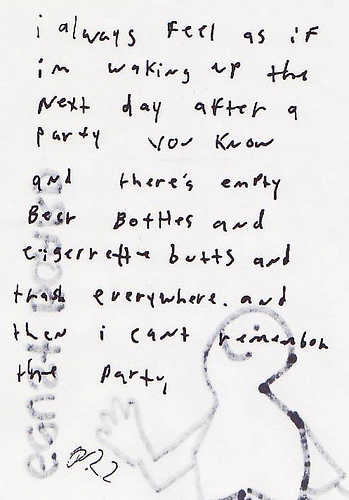 i always feel as if
im waking up the
next day after a
party you know
and there's empty
Beer Bottles and
cigerrette butts and
trash everywhere. and
then i cant remember
the party,